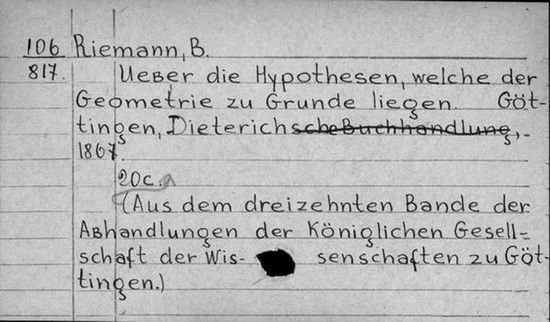 106 Riemann, B.
817. Ueber die Hypothesen, welche der
Geometrie zu Grunde liegen. Göt-
tingen, Dieterichsche Buchhandlung,
1867.
20 c.
(Aus dem dreizehnten Bande der
Abhandlungen der Königlichen Gesell-
schaft der Wis- senschaften zu Göt-
tingen.)